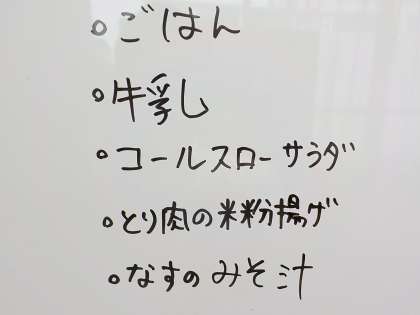 。ごはん
。牛乳
。コールスローサラダ
。とり肉の米粉揚げ
。なすのみそ汁